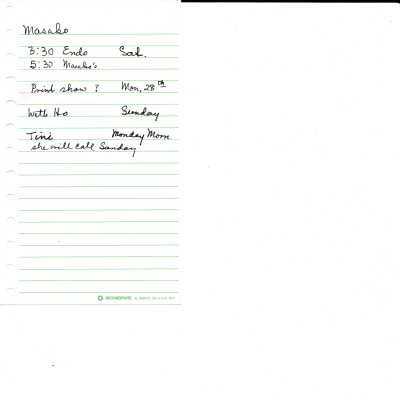 Masako
3:30 Endo Sat.
5:30 Masako's
Print show ? Mon, 28th
With Ho Sunday
Tini Monday Morn
she will call Sunday